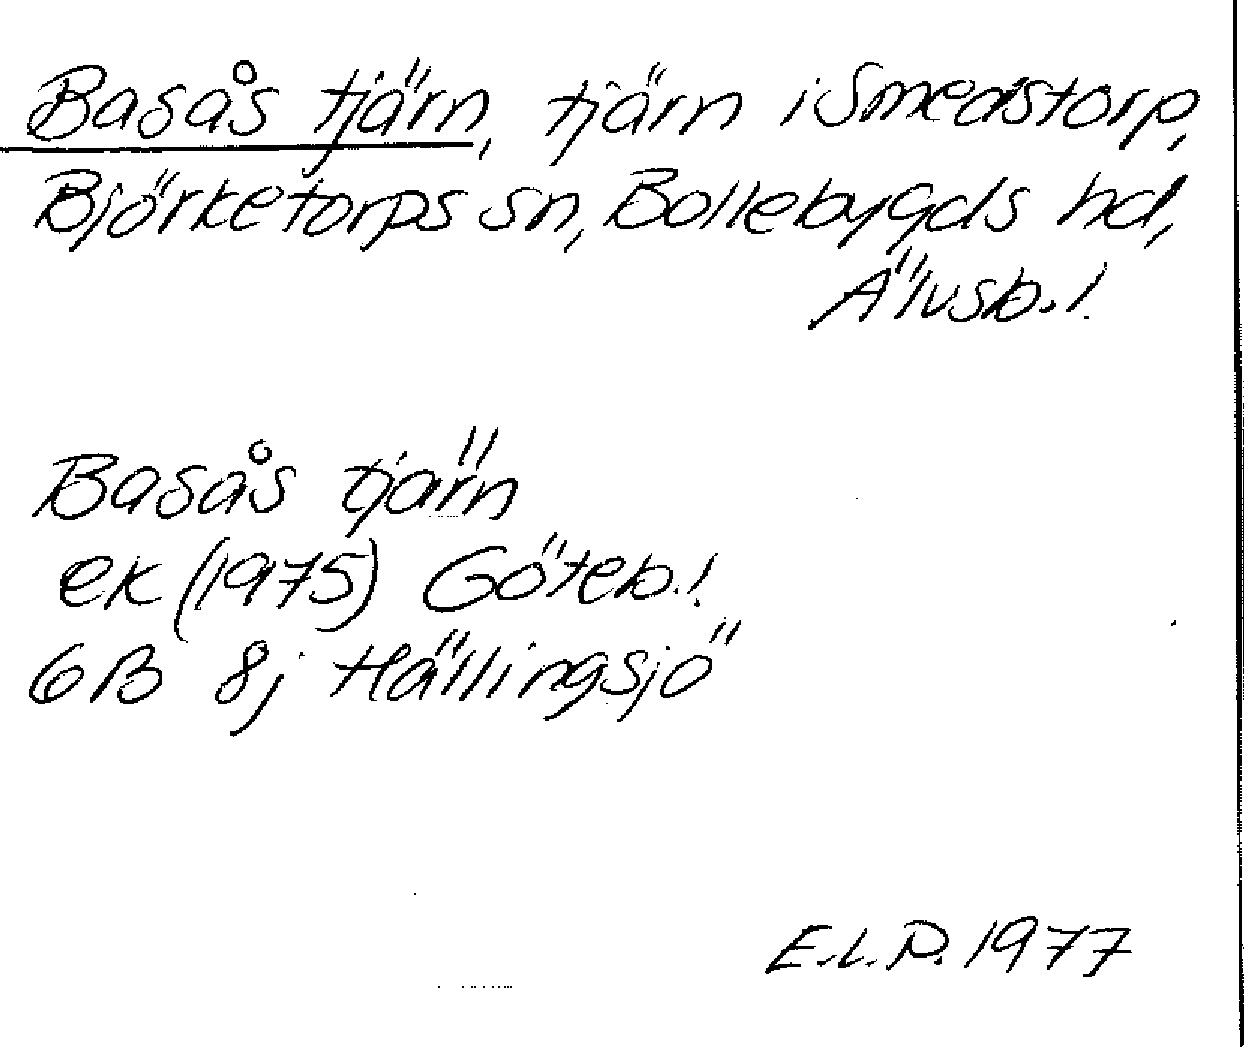 Basås tjärn, tjärn i Smedstorp,
Björketorps sn, Bollebygds hd,
Älvsb. l.
Basås tjärn
ek (1975) Göteb. l.
6B 8j Hällingsjö
E.L.P. 1977